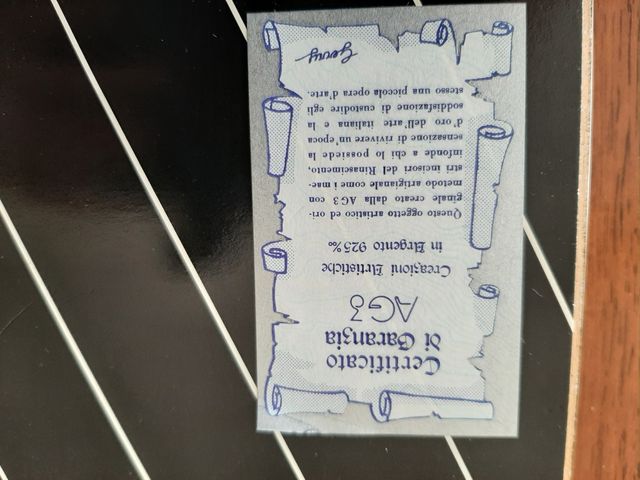 Certificato
di Garanzia
AG3
Creazioni Artistiche
in Argento 925‰
Questo oggetto artistico ed ori-
ginale creato dalla AG3 con
metodo artigianale come i mae-
stri incisori del Rinascimento,
infonde a chi lo possiede la
sensazione di rivivere un'epoca
d'oro dell'arte italiana e la
soddisfazione di custodire egli
stesso una piccola opera d'arte.